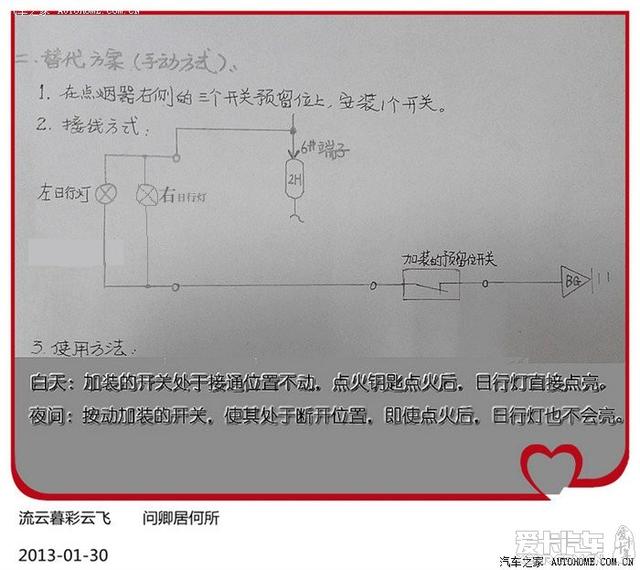 汽车之家 AUTOHOME.COM.CN
二、替代方案(手动方式)、
1. 在点烟器右侧的三个开关预留位上,安装1个开关。
2. 接线方式:
6#端子
左日行灯
右日行灯
2H
加装的预留位开关
BG
3. 使用方法:
白天:加装的开关处于接通位置不动,点火钥匙点火后,日行灯直接点亮。
夜间:按动加装的开关,使其处于断开位置,即使点火后,日行灯也不会亮。
流云暮彩云飞 问卿居何所
2013-01-30
爱卡汽车
汽车之家 AUTOHOME.COM.CN